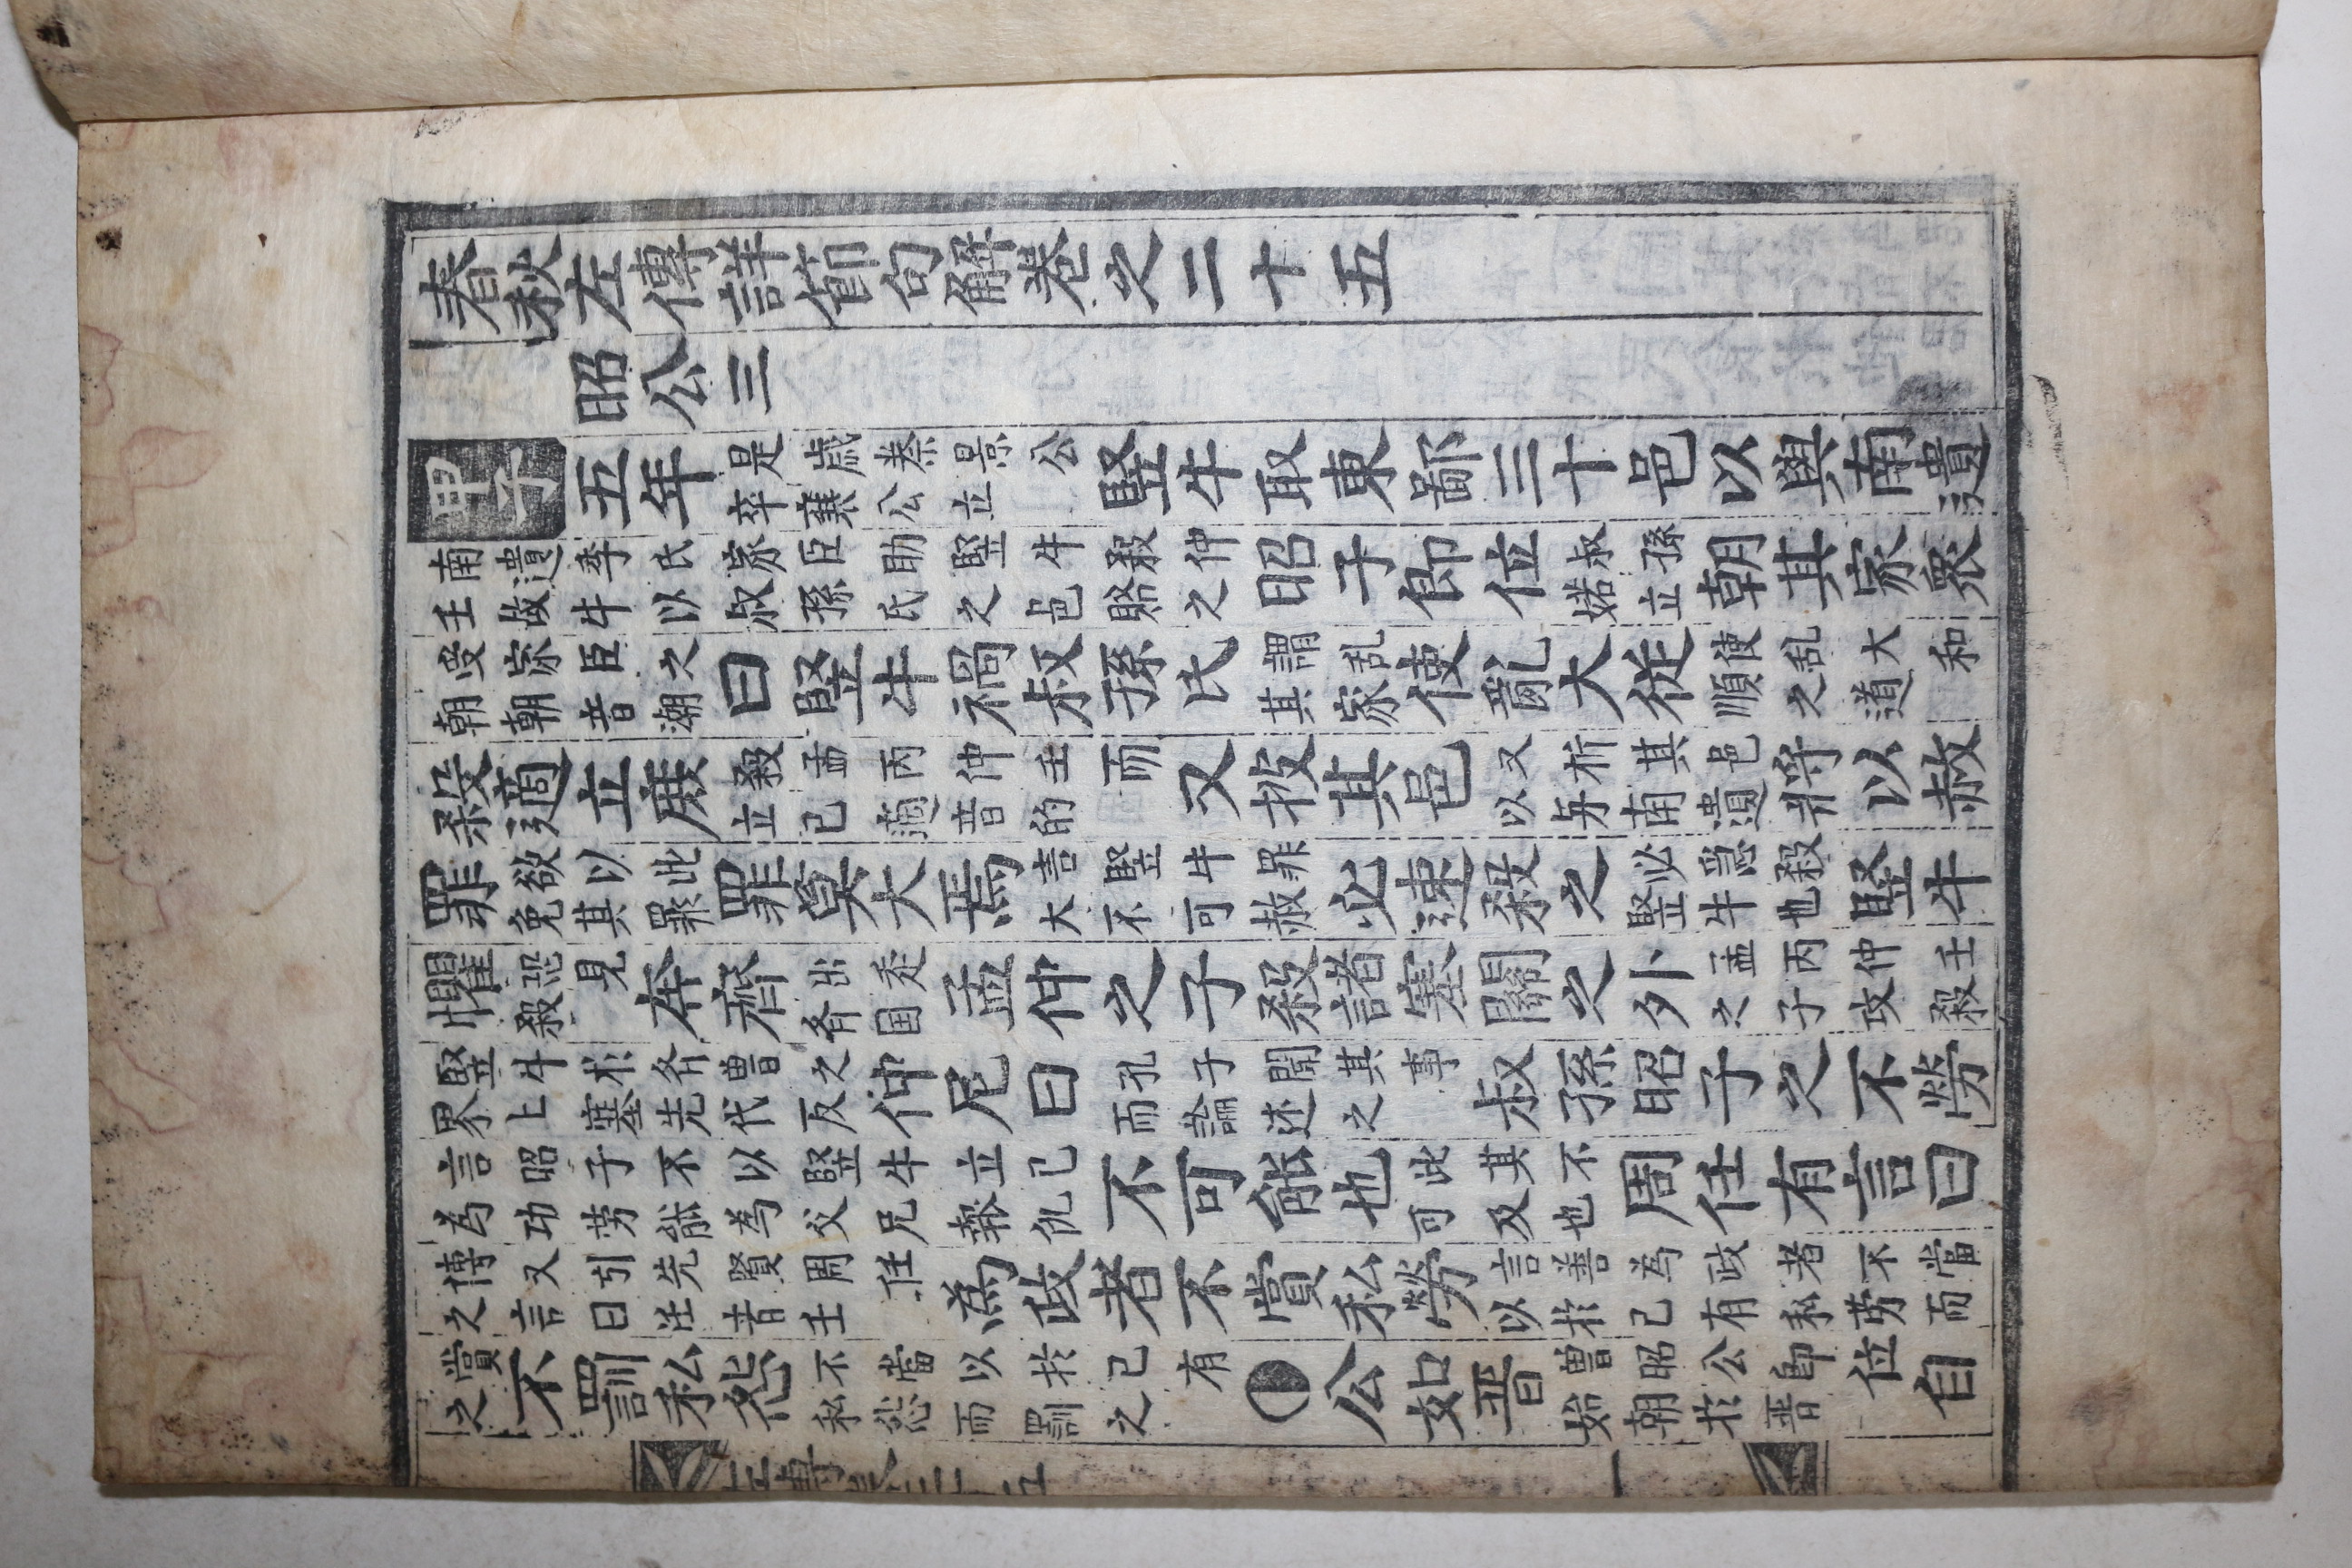 春秋左傳詳節句解卷之二十五
昭公三
甲子五年是歲秦景公卒襄公立竪牛取東鄙三十邑以與南遺
南遺季氏家臣助竪牛殺仲壬故牛以叔孫氏之邑賂之昭子即位叔孫婼立朝其家衆
受家臣之朝朝音潮曰竪牛禍叔孫氏謂乱其家使亂大從使乱大和順之道
殺適立庶殺孟丙仲壬而立己適音的又披其邑又析其邑以与南遺將以赦
罪欲以此免其罪罪莫大焉言竪牛罪大不可赦必速殺之必急殺竪牛也竪牛
懼恐見殺奔齊出走斉国孟仲之子殺諸塞關之外孟丙仲壬之子攻殺
竪牛於斉魯之界上塞先代反仲尼曰孔子聞其事而論述之叔孫昭子之不勞
言昭子不以竪牛立己為功劳能為父兄報仇不可能也此其不可及也周任有言曰
傳又引先賢周任之言曰任音壬為政者不賞私勞言善為政者不當以於己有私劳而
賞之不罰私怨不當以於己有私怨而罰之◐公如晋魯昭公即位始朝於晋自
左傳卷二十五 一